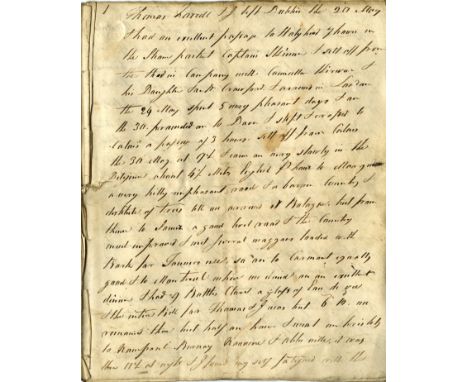 1 Thomas & I left Dublin the 20 May
I had an excellent passage to Holyhead 7 hours in
the Steam packet Captain Skinner I sett off from
the Head in Company with Councellor Kirwan &
his Daughter Crawford I arrived in London
the 24 May spent 5 very pleasant days I on
the 30 proceeded on to Dover I slept I crossed to
Calais a passage of 3 hours sett off from Calais
the 30 May at I came on very slowly in the
Diligence about 4½ Miles English hour to
a very hilly unpleasant road & a barren Country &
destitute of trees till we arrived at Bologne, but from
thence to Samer a good level road & the Country
much improved I met several waggons loaded with
Bark for Tanners use, so on to Cormont equally
good & to Montreuil where we dined on an excellent
dinner I had a Bottle Claret a glass of Eau de vie
& the entire Bill for Thomas & I was but 6 we
remained there but half an hour I went on briskly
to Nampont Bernay Nouvion & Abbeville, it was
then 11½ at night & I found my self fatigued with the